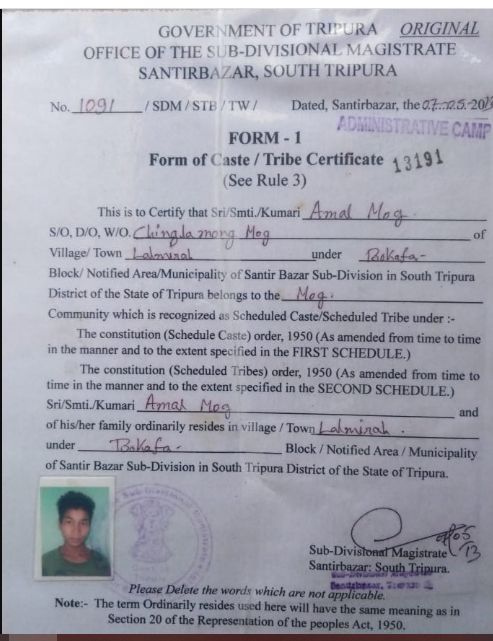 GOVERNMENT OF TRIPURA ORIGINAL
OFFICE OF THE SUB-DIVISIONAL MAGISTRATE
SANTIRBAZAR, SOUTH TRIPURA
No. 1091 / SDM / STB / TW / Dated, Santirbazar, the 07.05.2013
ADMINISTRATIVE CAMP
FORM - 1
Form of Caste / Tribe Certificate 13191
(See Rule 3)
This is to Certify that Sri/Smti./Kumari Amal Mog
S/O, D/O, W/O. Chingla mong Mog of
Village/ Town Lalmirah under Bokafa-
Block/ Notified Area/Municipality of Santir Bazar Sub-Division in South Tripura
District of the State of Tripura belongs to the Mog.
Community which is recognized as Scheduled Caste/Scheduled Tribe under :-
The constitution (Schedule Caste) order, 1950 (As amended from time to time
in the manner and to the extent specified in the FIRST SCHEDULE.)
The constitution (Scheduled Tribes) order, 1950 (As amended from time to
time in the manner and to the extent specified in the SECOND SCHEDULE.)
Sri/Smti./Kumari Amal Mog and
of his/her family ordinarily resides in village / Town Lalmirah.
under Bokafa- Block / Notified Area / Municipality
of Santir Bazar Sub-Division in South Tripura District of the State of Tripura.
Sub-Divisional Magistrate
Santirbazar: South Tripura.
Please Delete the words which are not applicable.
Note:- The term Ordinarily resides used here will have the same meaning as in
Section 20 of the Representation of the peoples Act, 1950.